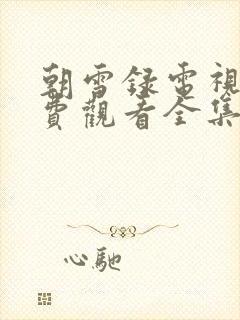 朝雪録電視
費觀看全集
心馳